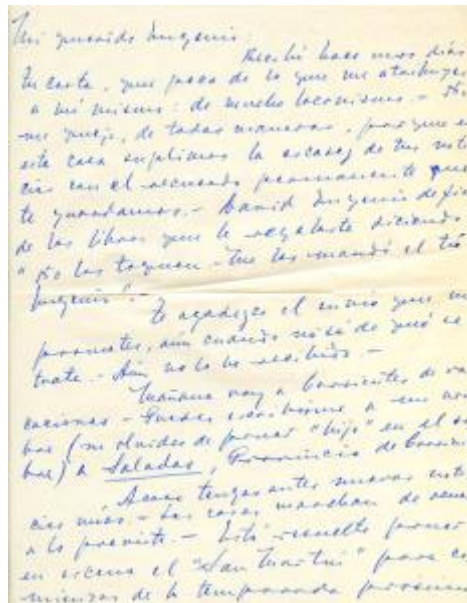 Mi querido Eugenio:
Recibí hace unos días
tu carta, que peca de lo que me atribuyes
a mí mismo: de mucho laconismo.- No
me quejo, de todas maneras, porque en
esta casa suplimos la escasez de tus noti
cias con el recuerdo permanente que
te guardamos.- David Eugenio
de los libros que le regalaste diciendo
"No los toquen - me los mandó el tío
Eugenio".-
Te agradezco el envío que me
prometes, aún cuando no sé de qué se
trate.- Aún no lo he recibido.-
Mañana voy a Corrientes de va
caciones - Puedes escribirme a mi nom
bre (no olvides de poner "hijo" en el so
bre) a Saladas, Provincia de Corrien
Acaso tengas antes nuevas noti
cias mías.- Las cosas marchan de acue
a lo previsto.- Está resuelto poner
en escena el "San Martín" para co
mienzos de la temporada próxima